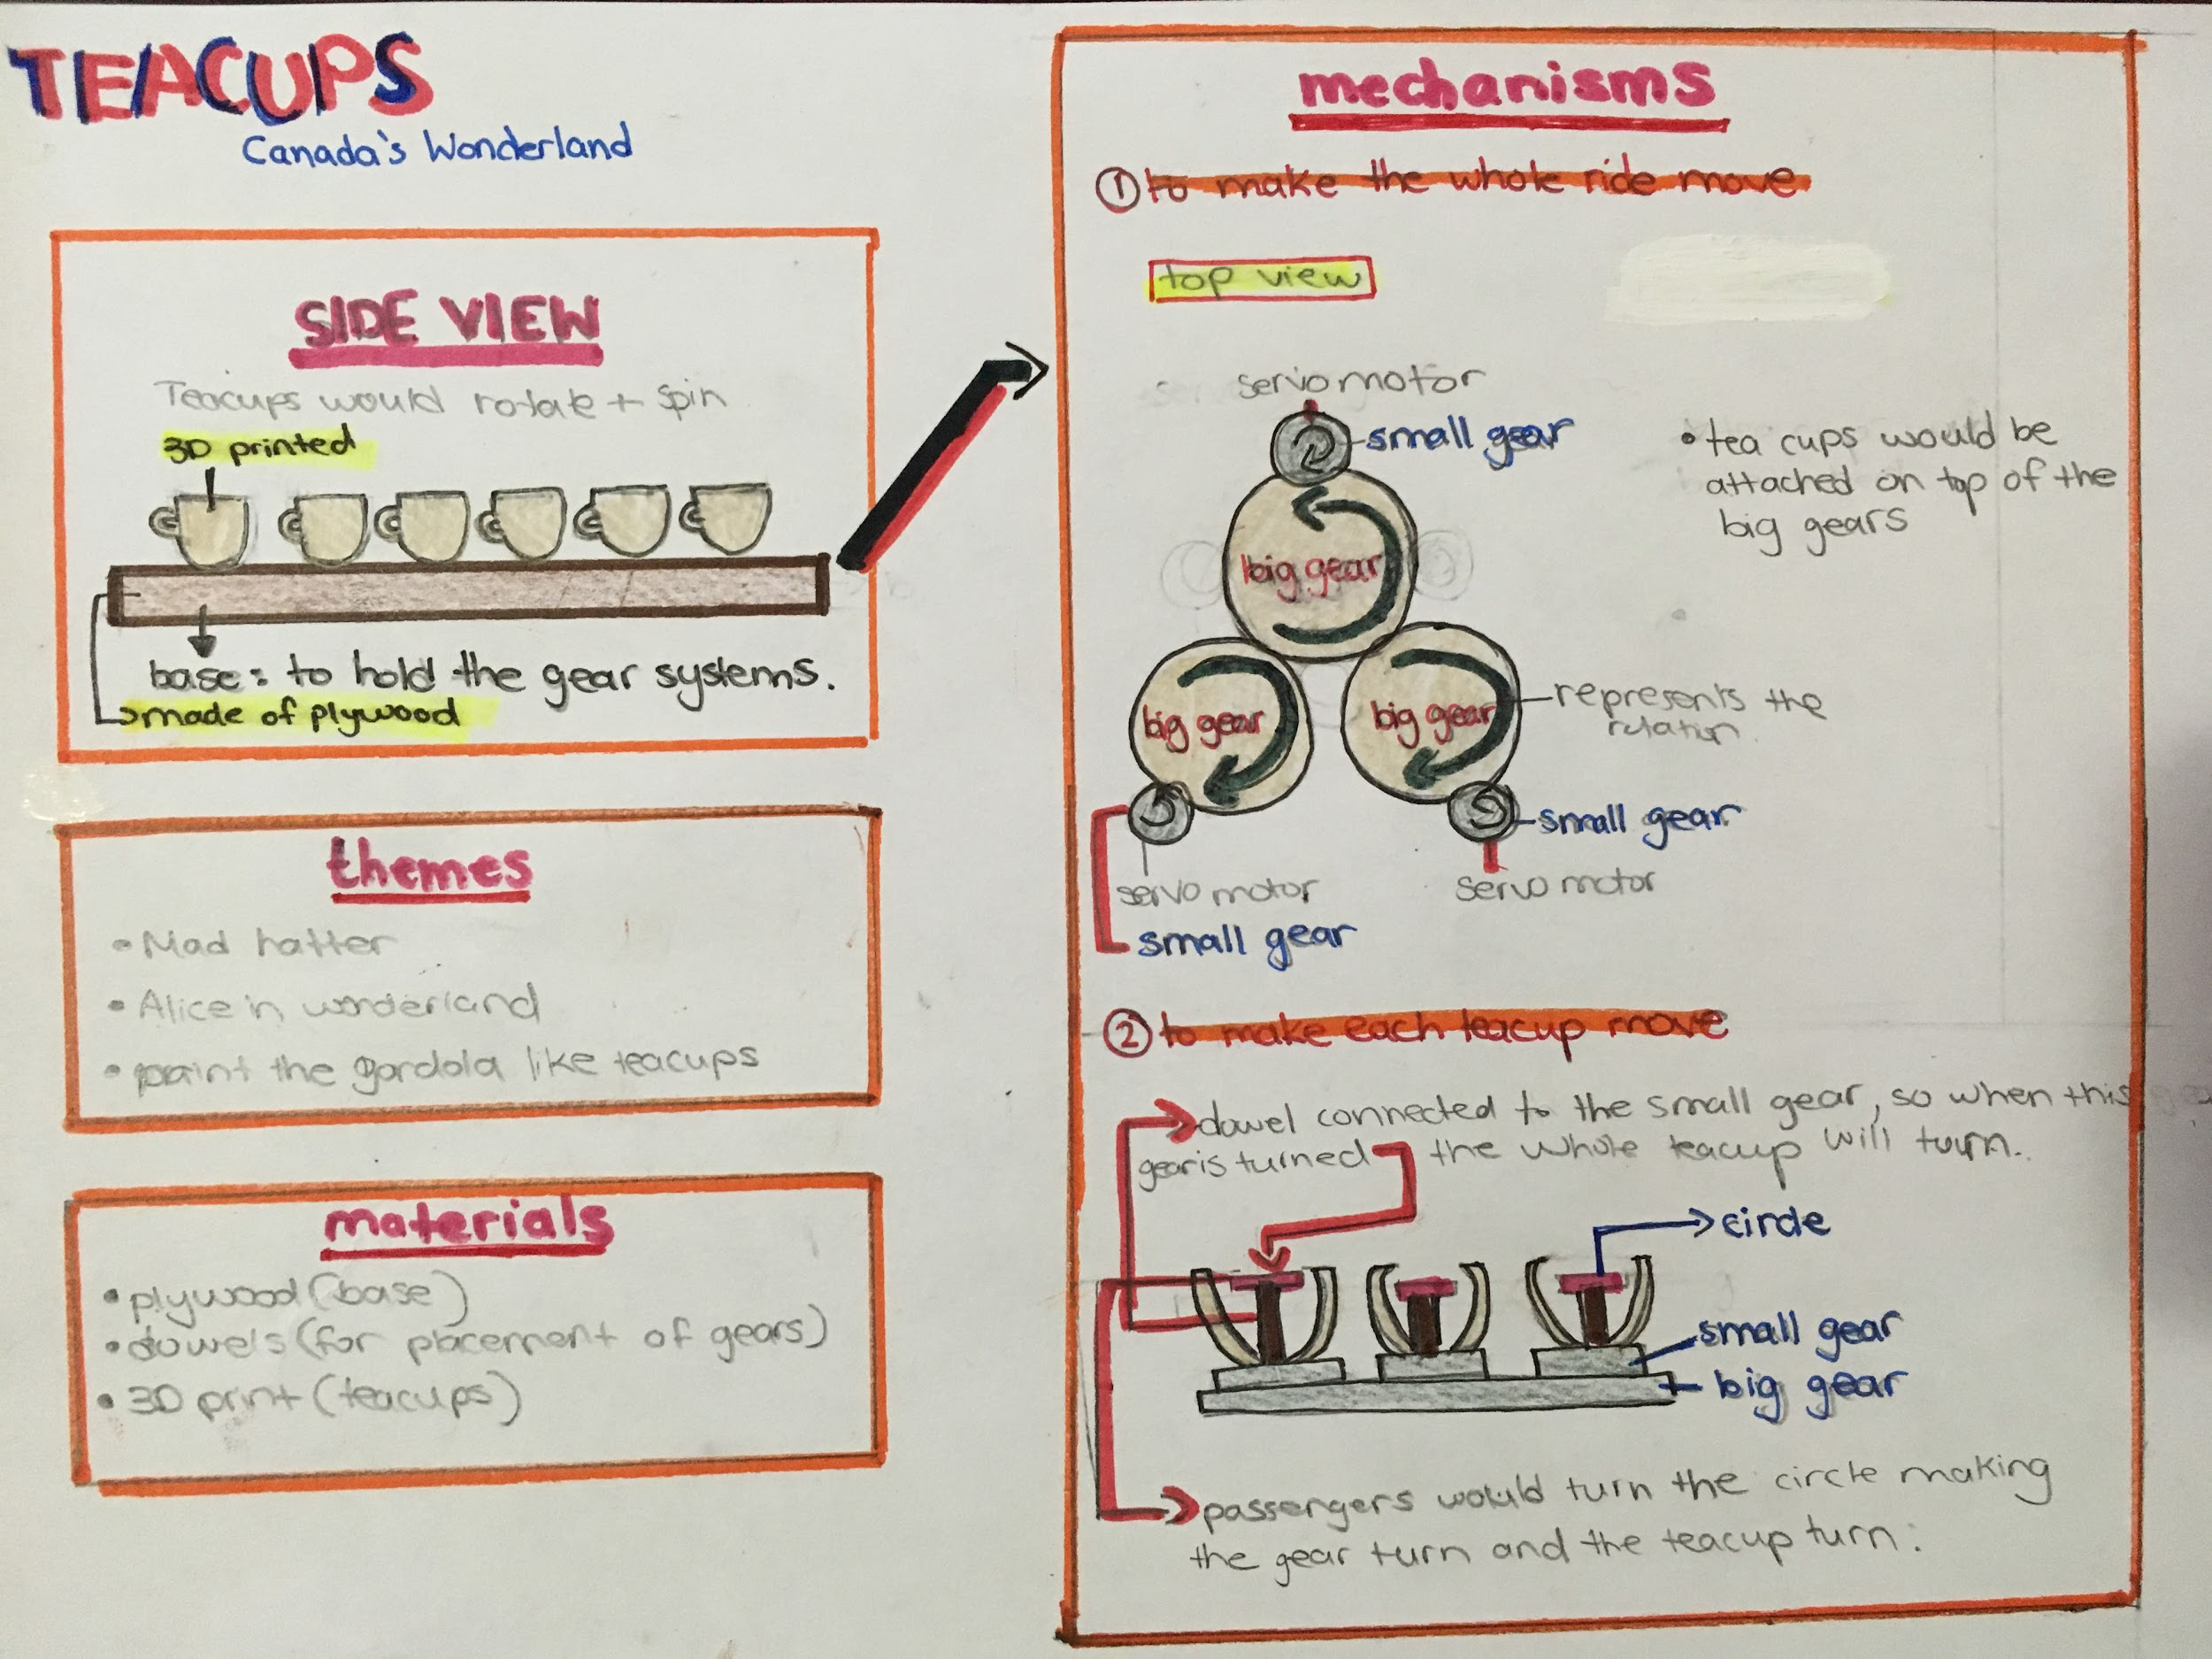 TEACUPS
Canada's Wonderland
SIDE VIEW
Teacups would rotate + spin
3D printed
base: to hold the gear systems.
made of plywood
themes
• Mad hatter
• Alice in wonderland
• paint the gondola like teacups
materials
• plywood (base)
• dowels (for placement of gears)
• 3D print (teacups)
mechanisms
① to make the whole ride move
top view
servo motor
small gear
• tea cups would be
attached on top of the
big gears
big gear
big gear
big gear
represents the
rotation.
small gear
servo motor
servo motor
small gear
② to make each teacup move
dowel connected to the small gear, so when this
gear is turned the whole teacup will turn.
circle
small gear
big gear
passengers would turn the circle making
the gear turn and the teacup turn.